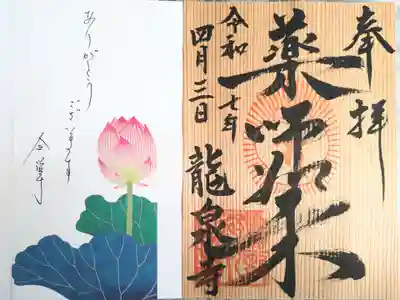 奉拝
薬師如来
令和七年
四月三日
龍泉寺
ありがとう
ございます
合掌